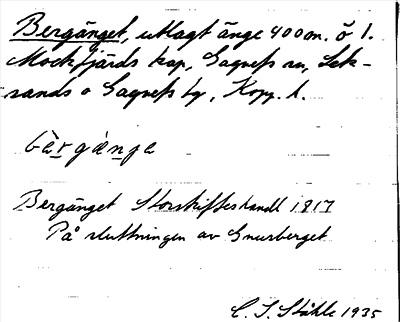 Bergänget, utlagt änge 400 m. ö l.
Mockfjärds kap, Gagnefs sn, Lek-
sands o Gagnefs tg, Kopp. l.
bärgänje
Bergänget Storskifteshandl 1817
På sluttningen av Gnusberget
C. I. Ståhle 1935